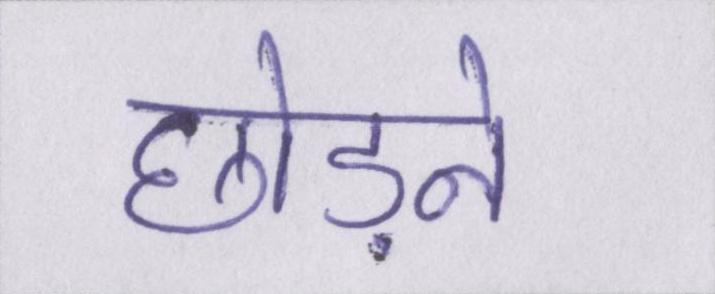 छोड़ने